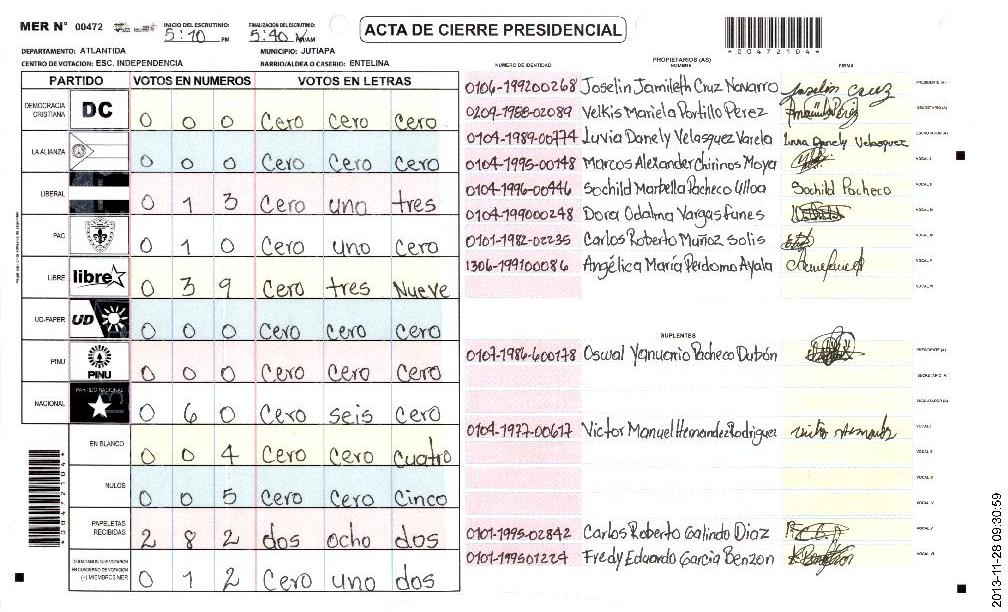 MER N° 00472
INICIO DEL ESCRUTINIO: 5:10 PM
FINALIZACION DEL ESCRUTINIO: 5:40 AM/AM
ACTA DE CIERRE PRESIDENCIAL
*00472104*
DEPARTAMENTO: ATLANTIDA
MUNICIPIO: JUTIAPA
CENTRO DE VOTACION: ESC. INDEPENDENCIA
BARRIO/ALDEA O CASERIO: ENTELINA
PARTIDO VOTOS EN NUMEROS VOTOS EN LETRAS
DEMOCRACIA CRISTIANA DC 0 0 0 Cero Cero Cero
LA ALIANZA 0 0 0 Cero Cero Cero
LIBERAL 0 1 3 Cero uno tres
PAC 0 1 0 Cero uno Cero
LIBRE libre 0 3 9 Cero tres Nueve
UD-FAPER UD 0 0 0 Cero Cero Cero
PINU PINU 0 0 0 Cero Cero Cero
NACIONAL PARTIDO NACIONAL 0 6 0 Cero seis cero
EN BLANCO 0 0 4 Cero Cero cuatro
NULOS 0 0 5 Cero Cero Cinco
PAPELETAS RECIBIDAS 2 8 2 dos ocho dos
CIUDADANOS QUE VOTARON EN CUADERNO DE VOTACION (+) MIEMBROS MER 0 1 2 Cero uno dos
*00472104*
PROPIETARIOS (AS)
NUMERO DE IDENTIDAD NOMBRE FIRMA
0106-199200268 Joselin Jamileth Cruz Navarro Joselin Cruz PRESIDENTE (A)
0209-1988-02089 Velkis Mariela Portillo Perez SECRETARIO (A)
0104-1989-00774 Luvia Danely Velasquez Varela Luvia Danely Velasquez ESCRUTADOR (A)
0104-1995-00148 Marcos Alexander Chirinos Moya VOCAL I
0104-1996-00446 Sochild Marbella Pacheco Ulloa Sochild Pacheco VOCAL II
0104-199000248 Dora Odalma Vargas funes VOCAL III
0101-1982-02235 Carlos Roberto Muñoz Solis VOCAL IV
1306-199100086 Angélica María Perdomo Ayala VOCAL V
VOCAL VI
SUPLENTES
0107-1986-600178 Oswal Yanuario Pacheco Dubón PRESIDENTE (A)
SECRETARIO (A)
ESCRUTADOR (A)
0104-1977-00617 Victor Manuel Hernandez Rodriguez VOCAL I
VOCAL II
VOCAL III
VOCAL IV
0101-1995-02842 Carlos Roberto Galindo Diaz VOCAL V
0101-199501224 Fredy Eduardo Garcia Benzon VOCAL VI
2013-11-28 09:30:59